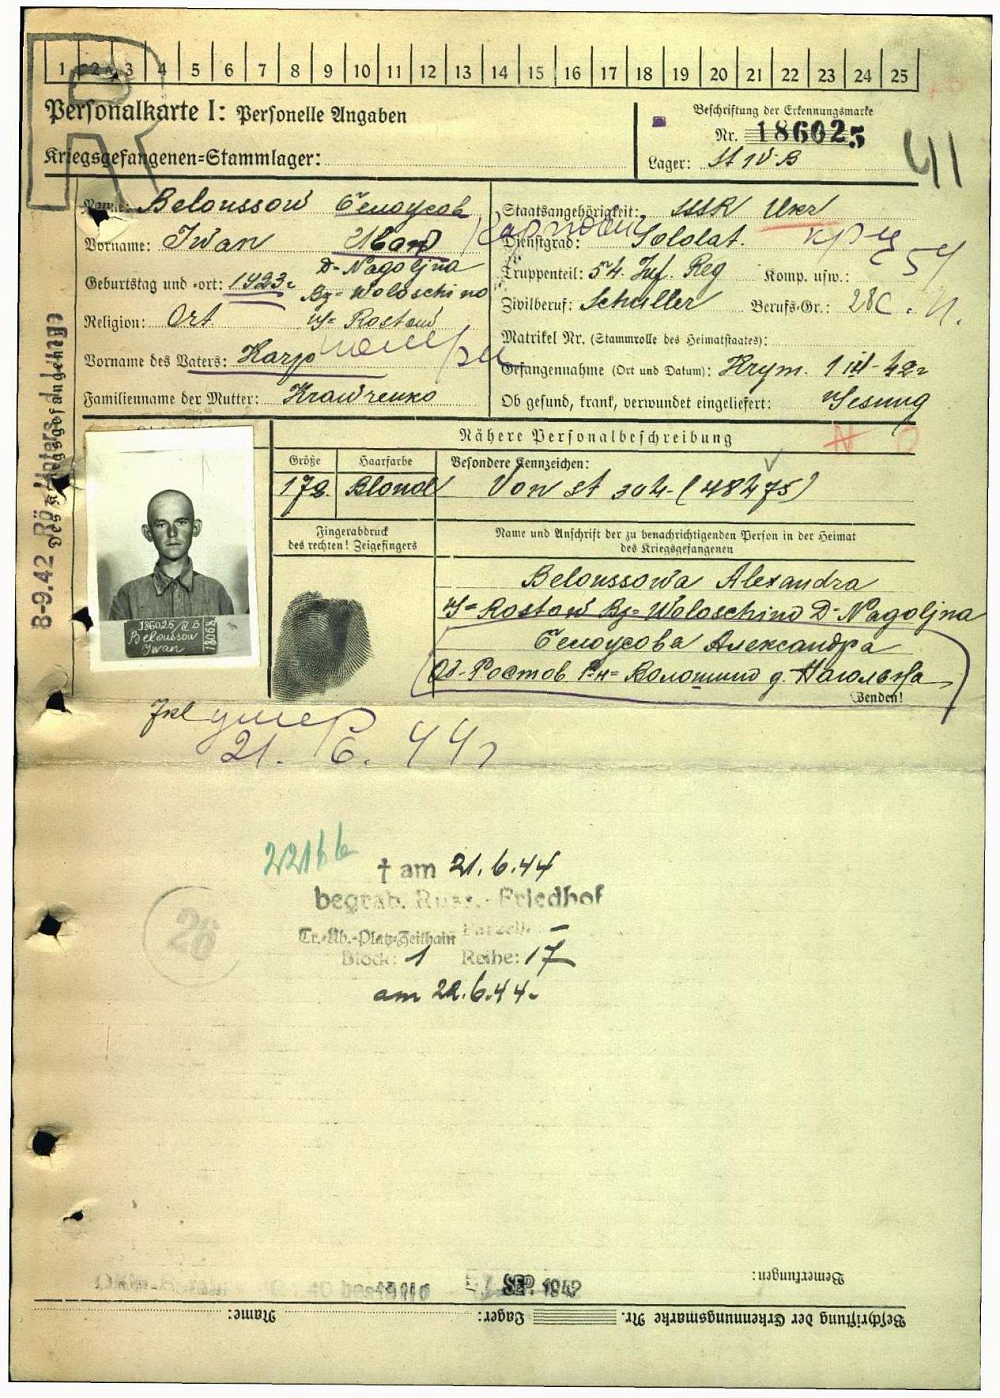 1 2 3 4 5 6 7 8 9 10 11 12 13 14 15 16 17 18 19 20 21 22 23 24 25
Personalkarte I: Personelle Angaben
Kriegsgefangenen=Stammlager:
Beschriftung der Erkennungsmarke
Nr. 186025
Lager: St IV B
41
Name: Beloussow Белоусов
Vorname: Iwan Иван Карпович
Geburtstag und =ort: 1923. D= Nagoljna
Bz= Woloschino
Religion: Ort. Rostow
Vorname des Vaters: Karp
Familienname der Mutter: Krawzenko
Staatsangehörigkeit: Ukr
Dienstgrad: Soldat.
Truppenteil: 54. Inf. Reg Komp. usw.:
Zivilberuf: Schuller Berufs=Gr.: 28C
Matrikel Nr. (Stammrolle des Heimatstaates):
Gefangennahme (Ort und Datum): Krym. 1 III-42
Ob gesund, krank, verwundet eingeliefert: Gesung
Nähere Personalbeschreibung
Größe Haarfarbe Besondere Kennzeichen:
172 Blond Von St 304-(48475)
Fingerabdruck
des rechten! Zeigefingers
Name und Anschrift der zu benachrichtigenden Person in der Heimat
des Kriegsgefangenen
Beloussowa Alexandra
Rostow Bz= Woloschino D= Nagoljna
Белоусова Александра
Об. Ростов. Р-н= Волошино д. Нагольна
Wenden!
186025/IV B
Beloussow
Iwan
8-9.42
умер
21. 6. 44г
22166
† am 21.6.44
begrab. Russ.-Friedhof
Tr.=Üb.=Platz=Zeithain Parzelle: –
Block: 1 Reihe: 17
am 22.6.44.
26
SEP. 1942
Bemerkungen:
Beschriftung der Erkennungsmarke Nr. Lager: Name: